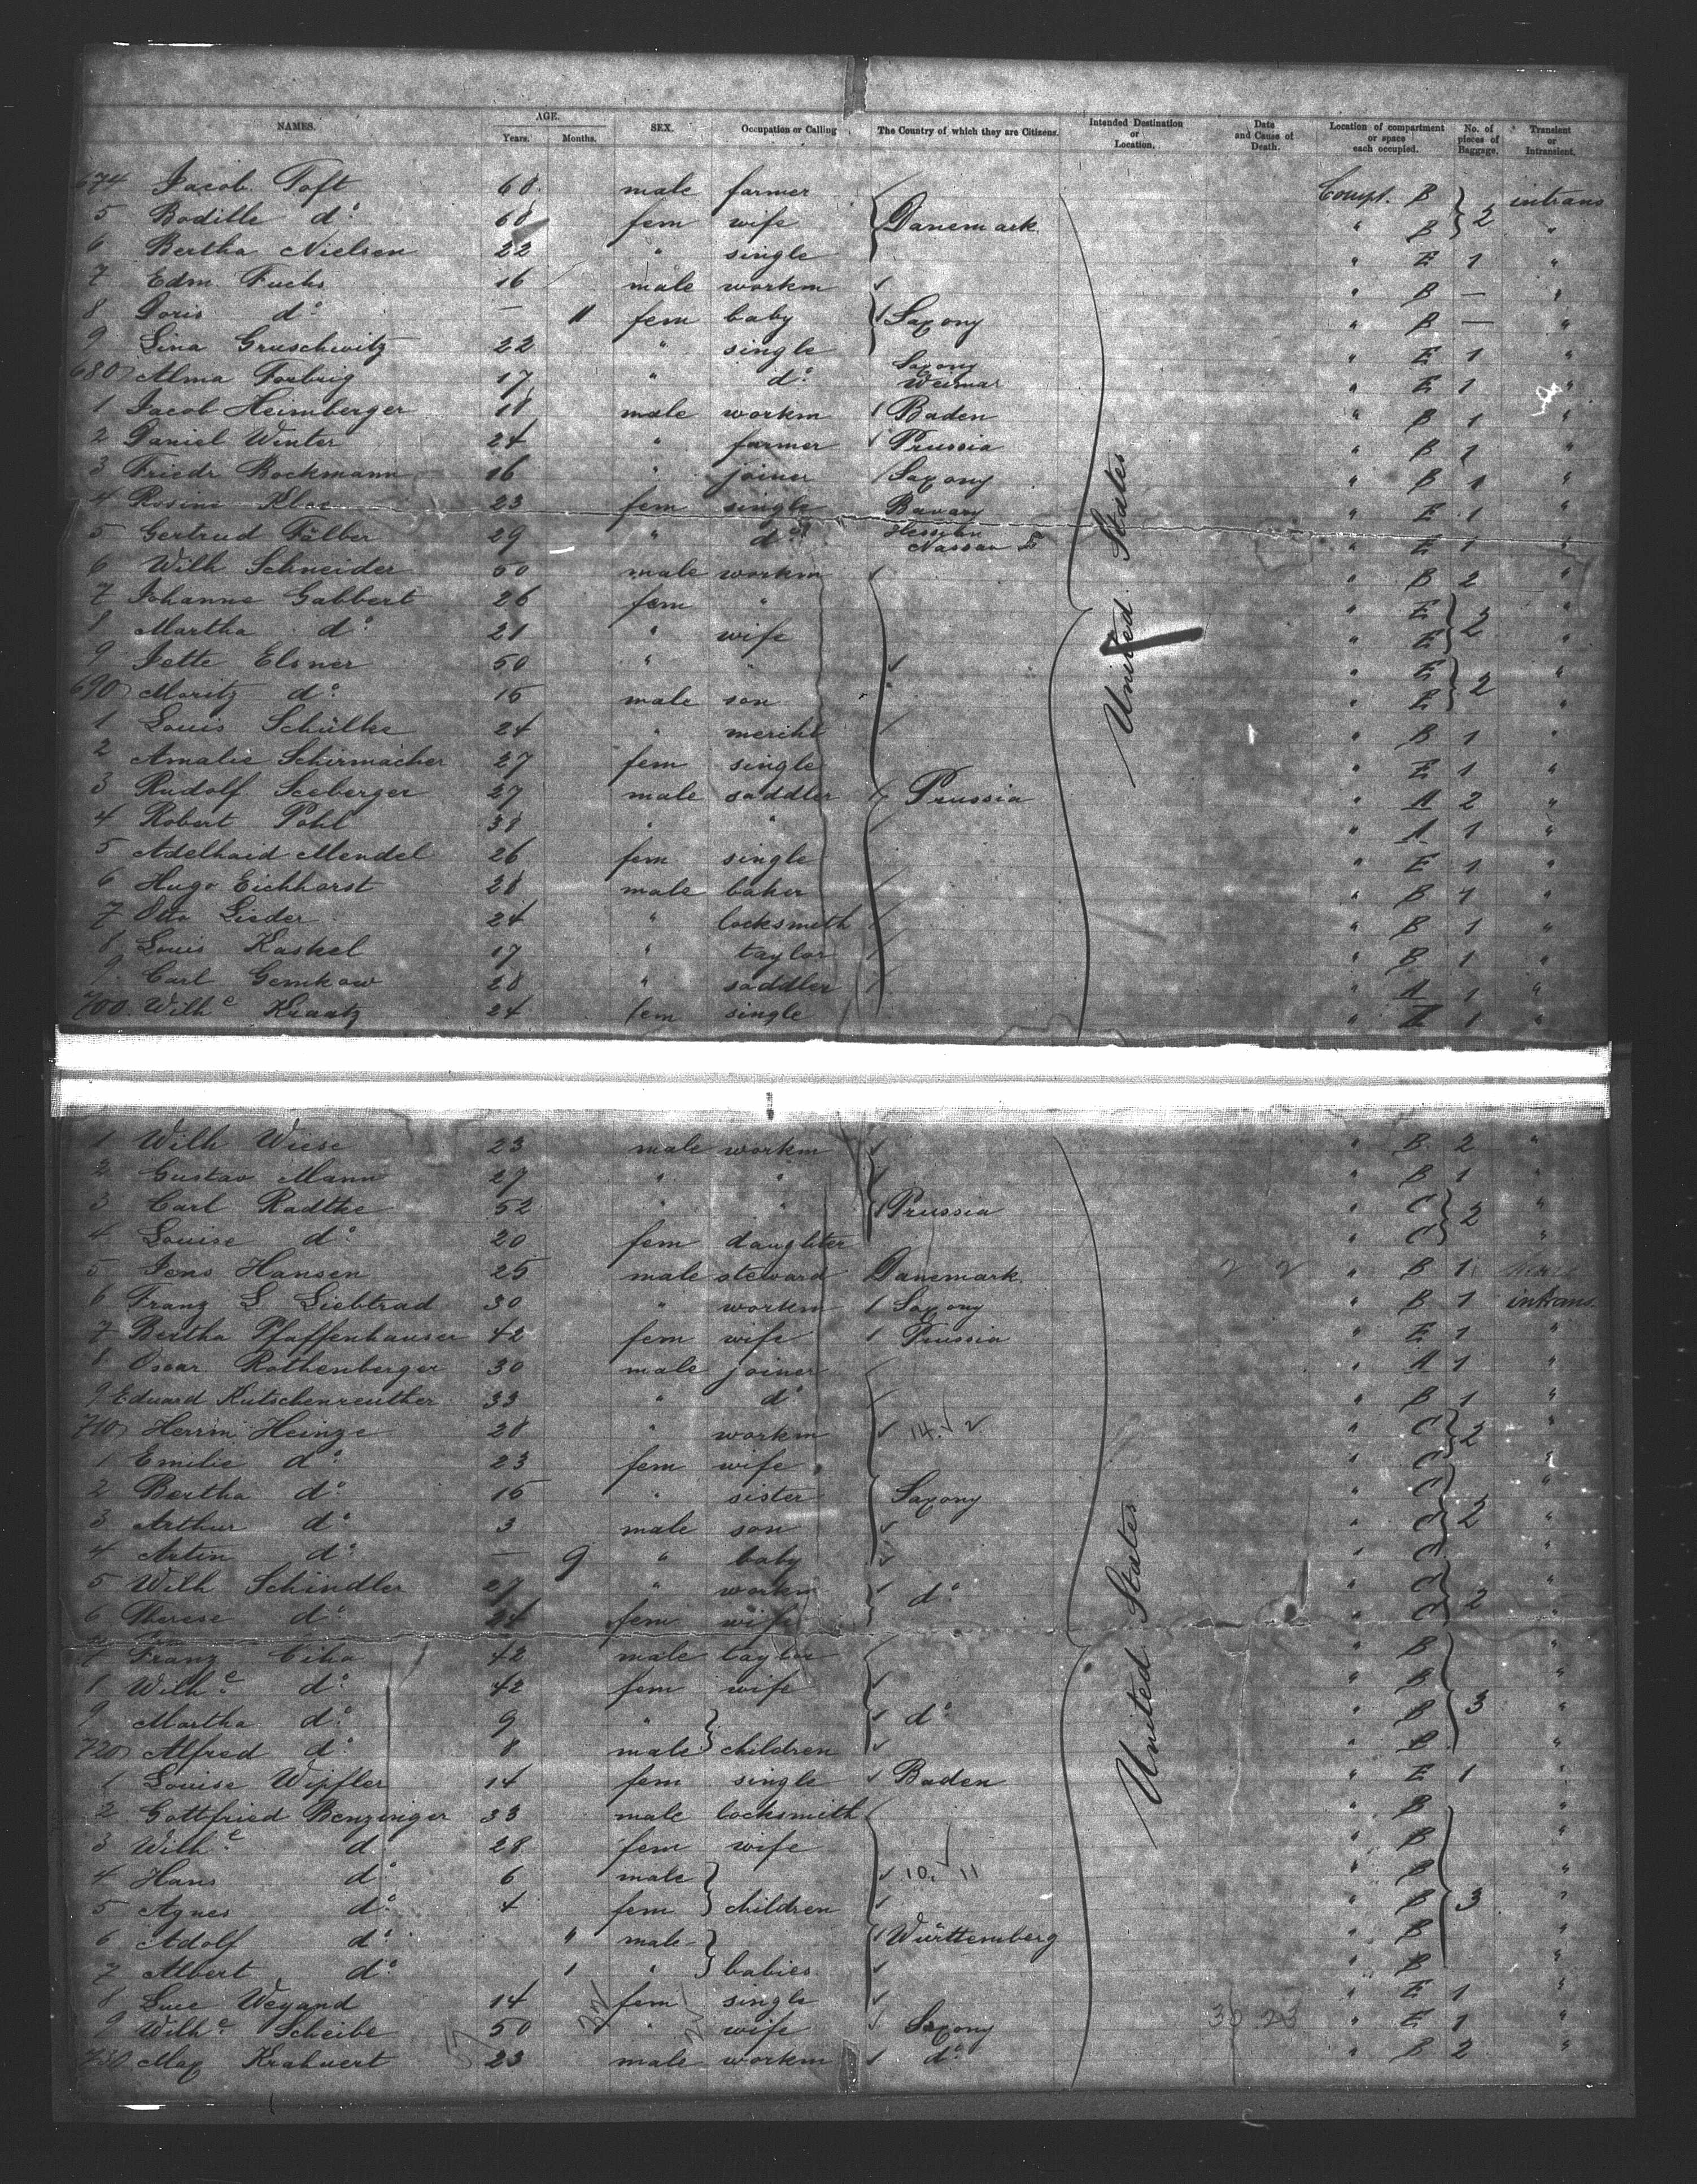 NAMES. AGE. Years. Months. SEX. Occupation or Calling The Country of which they are Citizens. Intended Destination or Location. Date and Cause of Death. Location of compartment or space each occupied. No. of pieces of Baggage. Transient or Intransient.
674 Jacob Toft 60 male farmer Compt. B intrans
5 Bodille do 60 fem wife Danemark " B 2 "
6 Bertha Nielsen 22 " single " E 1 "
7 Edm Fuchs 16 male workm " B — "
8 Doris do — 11 fem baby Saxony " B — "
9 Lina Gruschwitz 22 " single " E 1 "
680 Alma Forbrig 17 " do Saxony Weimar " E 1 "
1 Jacob Heimberger 18 male workm Baden " B 1 "
2 Daniel Winter 24 " farmer Prussia " B 1 "
3 Friedr Bockmann 16 " joiner Saxony " B 1 "
4 Rosine 23 fem single Bavary " E 1 "
5 Gertrud Fälber 29 " do Hessen Nassau " E 1 "
6 Wilh Schneider 50 male workm " B 2 "
7 Johanne Gabbert 26 fem " " E "
8 Martha do 21 " wife " E 2 "
9 Jette Elsner 50 " " " E "
690 Moritz do 15 male son " E 2 "
1 Louis Schülke 24 " mercht " B 1 "
2 Amalie Schirmacher 27 fem single " E 1 "
3 Rudolf Seeberger 27 male saddler Prussia " A 2 "
4 Robert Pohl 38 " " " A 1 "
5 Adelhaid Mendel 26 fem single " E 1 "
6 Hugo Eichhorst 28 male baker " B 1 "
7 Otto Lieder 24 " locksmith " B 1 "
8 Louis Kaskel 17 " taylor " B 1 "
9 Carl Gemkow 28 " saddler " A 1 "
700 Wilhe Kraatz 24 fem single " E 1 "
United States
1 Wilh Wiese 23 male workm " B 2 "
2 Gustav Mann 27 " " " B 1 "
3 Carl Radtke 52 " " Prussia " C 2 "
4 Louise do 20 fem daughter " C "
5 Jens Hansen 25 male steward Danemark " B 1
6 Franz L Liebtrad 30 " workm Saxony " B 1 intrans
7 Bertha Pfaffenhauser 42 fem wife Prussia " E 1 "
8 Oscar Rothenberger 30 male joiner " A 1 "
9 Eduard Kutschenreuther 33 " do " B 1 "
710 Herrm Heinze 28 " workm 14. 2 " C 2 "
1 Emilie do 23 fem wife " C "
2 Bertha do 15 " sister Saxony " C "
3 Arthur do 3 male son " C 2 "
4 Artin do — 9 " baby " C "
5 Wilh Schindler 27 " workm do " C "
6 Therese do 24 fem wife " C 2 "
7 Franz Ciha 42 male taylor " B "
8 Wilhe do 42 fem wife " B "
9 Martha do 9 " do " B 3 "
720 Alfred do 8 male children " B "
1 Louise Wipfler 14 fem single Baden " E 1 "
2 Gottfried Benzinger 33 male locksmith " B "
3 Wilhe d 28 fem wife " B "
4 Hans do 6 male 10. 11 " B "
5 Agnes do 4 fem children " B 3 "
6 Adolf do " male Württemberg " B "
7 Albert do 1 " babies " B "
8 Weyand 14 fem single " E 1 "
9 Wilhe Scheibe 50 " wife Saxony " E 1 "
730 Max Krahnert 23 male workm do " B 2 "
United States